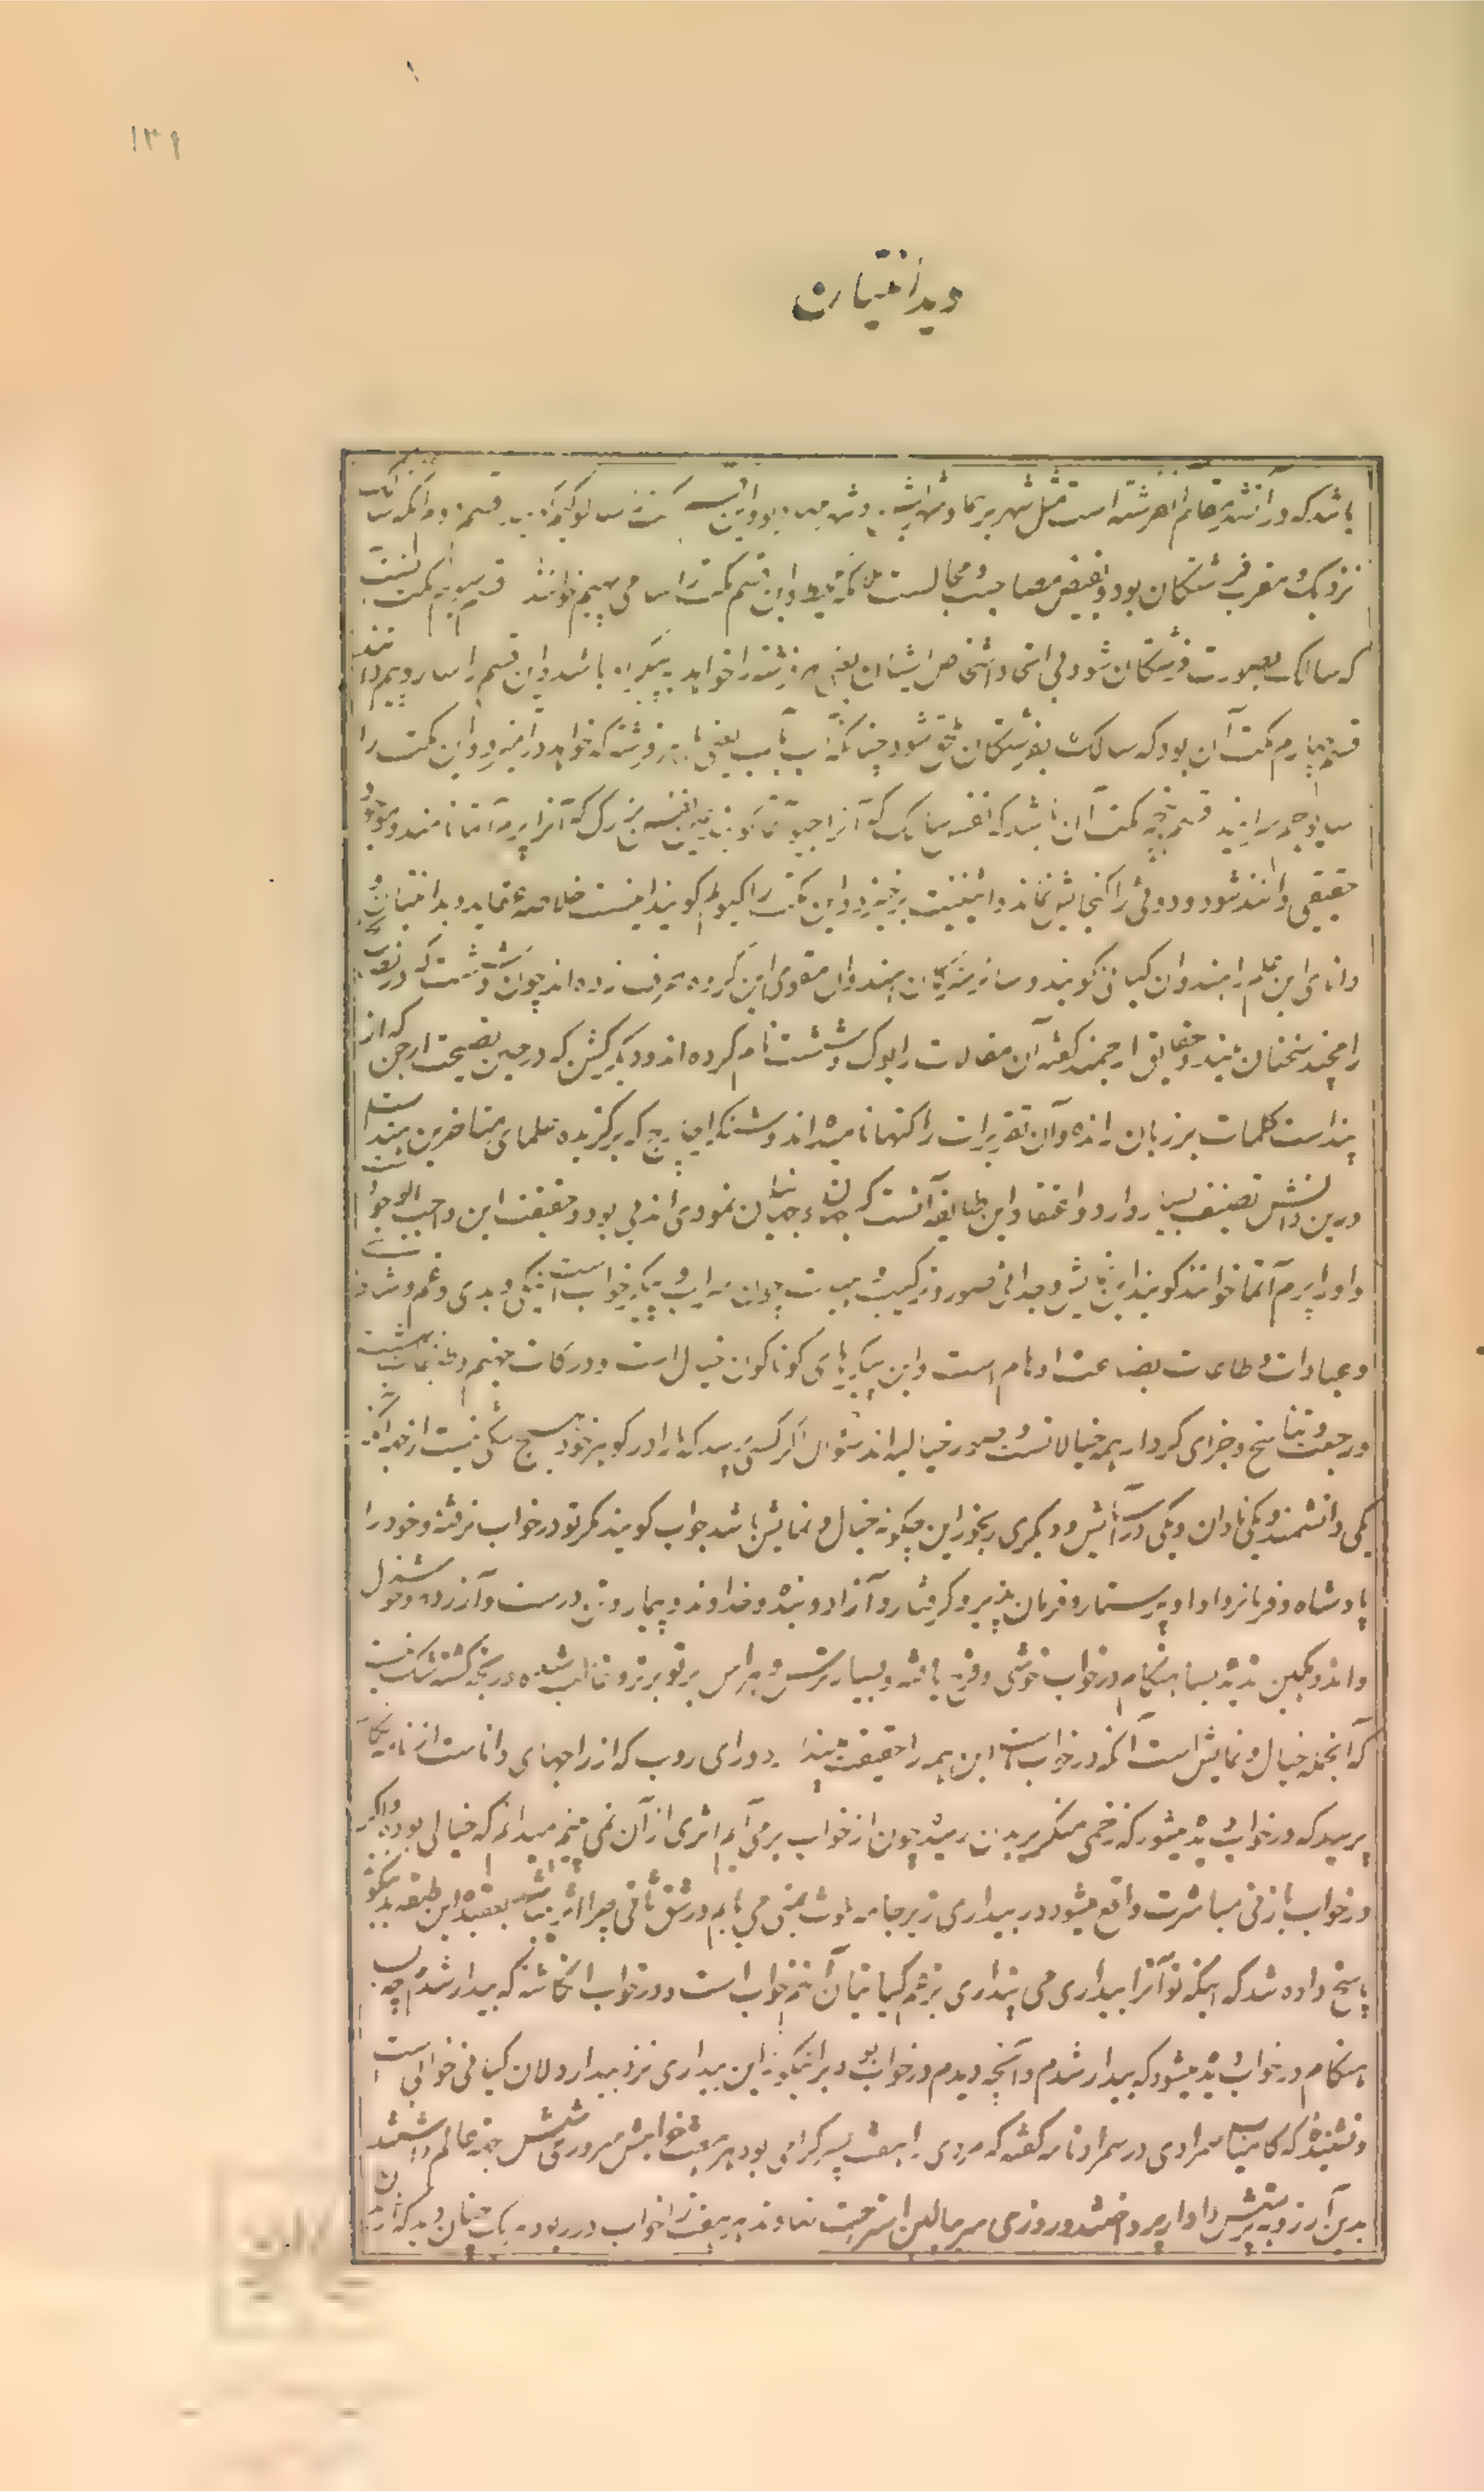 ۱۳۹
ویدانتیان
باشد که در آنشهر مقام آن فرشته است مثل شهر برهما و شهر بشن و شهر مهادیو و این قسم مکت را سالوک گویند قسم دوم آنکه سالک
نزدیک و مقرب فرشتگان بود و بفیض مصاحبت و مجالست و این قسم مکت را سامی پیم خوانند قسم سیوم مکت آنست
که سالک بصورت فرشتگان شود بی اتحاد اشخاص ایشان یعنی هر فرشته را خواهد به پیکر او باشد و این قسم را سارو پیم دانند
قسم چهارم مکت آن بود که سالک بفرشتگان متحق شود چنانکه آب بآب یعنی با هر فرشته که خواهد در آمیزد و این مکت را
سایوجم سرایند قسم پنجم مکت آن باشد که نفس سالک که آنرا جیو آتما گویند عین نفس بزرگ که آنرا پرم آتما نامند و موجود
حقیقی دانند شود و دوئی را گنجایش نماند و اثنینیت برخیزد و این مکت را گویند اینست خلاصه عقاید ویدانتیان و
دانای این علم را هندوان گیانی گویند و هندوان مقوی این گروه حرف زده اند چون وششت که در نصیحت
رامچند سخنان بلند و حقایق ارجمند گفته آن مقالات را یوگ وششت نام کرده اند و دیگر کشن که در حین نصیحت ارجن که از
پنداست کلمات بر زبان رانده و آن تقریرات را گتها نامیده اند و شنکراچارج که برگزیده علمای متاخرین هند است
درین دانش تصنیف بسیار دارد و اعتقاد این طایفه آنست که جهان و جهانیان نمودی اند بی بود و حقیقت این واجب الوجود است
و او را پرم آتما خوانند گویند این نمایش و جدائی صور و ترکیب هیئت چون سراب و پیکر خواب است نیکی و بدی و غم و شادی
و عبادات و طاعات بضاعت اوهام است و این پیکرهای گوناگون خیال است و درکات جهنم و طبقات بهشت
و رجعت و تناسخ و جزای کردار همه خیالاتست و صور خیالیه اند سؤال اگر کسی پرسد که ما را در گوهر خود هیچ شکی نیست از چه رو
یکی دانشمند و یکی نادان و یکی در آسایش و دیگری رنجور این چگونه خیال و نمایش باشد جواب گویند مگر تو در خواب نرفته و خود را
پادشاه و فرمانروا و پرستار و فرمان پذیر و گرفتار و آزاد و بنده و خداوند و بیمار و تندرست و آزرده و خوشدل
و اندوهگین ندیده بسا هنگام در خواب خوشی و فرح یافته و بسیار ترس و هراس بر تو غالب شده و رنجه گشته شک نیست
که آنجمله خیال و نمایش است آنکه در خواب است این همه را حقیقت بیند دورای روپ که از راجهای داناست از نامه نگار
پرسید که در خواب دیده میشود که زخمی منکر بر بدن رسید چون از خواب برمی آیم اثری از آن نمی بینم میدانم که خیالی بوده و اگر
در خواب با زنی مباشرت واقع میشود در بیداری زیر جامه ملوث بمنی می یابم در شق ثانی چرا اثر میباشد بعقیده این طبقه بدیگونه
پاسخ داده شد که اینکه تو آنرا بیداری می پنداری بزعم گیانیان آن هم خواب است و در خواب انگاشته که بیدار شدم چه بسا
هنگام در خواب دیده میشود که بیدار شدم و آنچه دیدم در خواب بود برانیگونه این بیداری نزد بیدار دلان گیانی خوابی است
و نشنیده که کامیاب سمرادی در سمراد نامه گفته که مردی را هفت پسر گرامی بود هر هفت خواهش سروری شش جهة عالم داشتند
بدین آرزو به پرستش دادار پرداختند و روزی سر ببالین استراحت نهادند هر هفت را خواب در ربود هر یک چنان دید که از تن